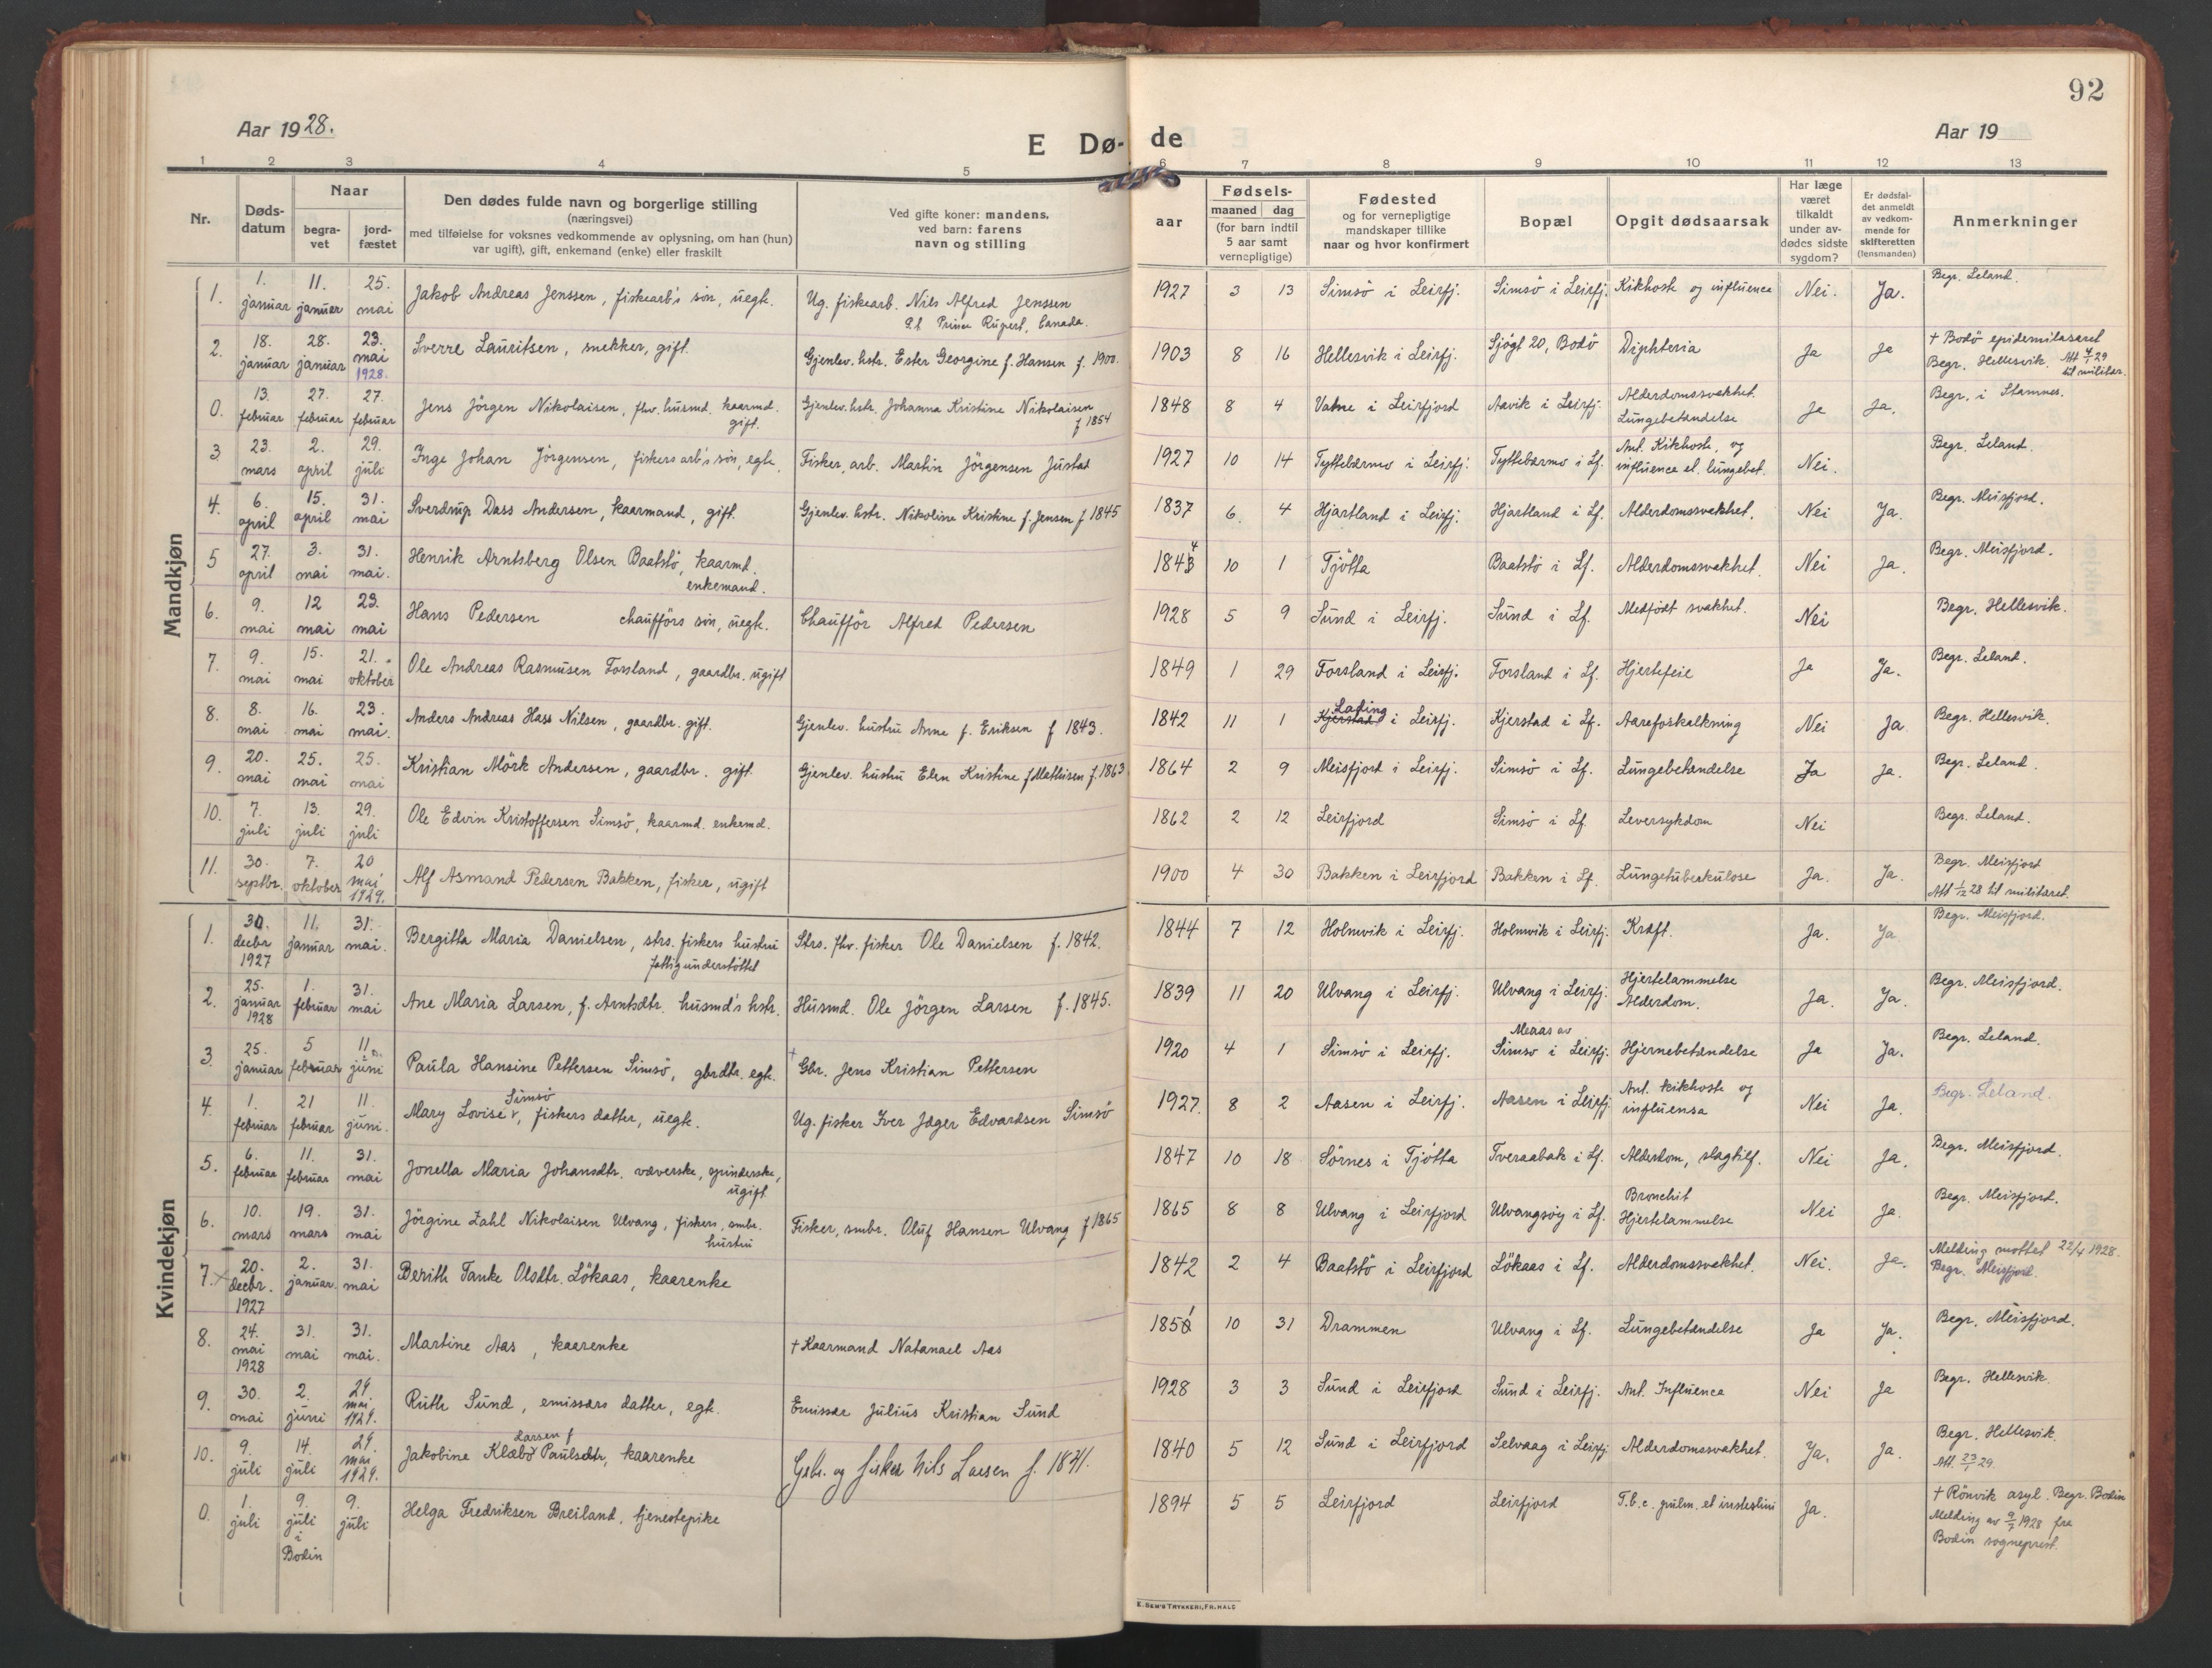 92
Aar 1928.
E Dø-de
Aar 19
1 2 3 4 5 6 7 8 9 10 11 12 13
Nr.
Døds-
datum
Naar
begra-
vet
jord-
fæstet
Den dødes fulde navn og borgerlige stilling
(næringsvei)
med tilføielse for voksnes vedkommende av oplysning, om han (hun)
var ugift), gift, enkemand (enke) eller fraskilt
Ved gifte koner: mandens,
ved barn: farens
navn og stilling
Fødsels-
aar
maaned dag
(for barn indtil
5 aar samt
vernepligtige)
Fødested
og for vernepligtige
mandskaper tillike
naar og hvor konfirmert
Bopæl
Opgit dødsaarsak
Har læge
været
tilkaldt
under av-
dødes sidste
sygdom?
Er dødsfal-
det anmeldt
av vedkom-
mende for
skifteretten
(lensmanden)
Anmerkninger
Mandkjøn
1. 1. januar 11. januar 25. mai Jakob Andreas Jenssen, fiskearb's søn, uegt. Ug. fiskearb. Nils Alfred Jenssen
P.t. Prince Rupert, Canada. 1927 3 13 Simsö i Leirfj. Simsö i Leirfj. Kikhoste og influence Nei. Ja. Begr. Leland.
2. 18. januar 28. januar 23. mai 1928. Sverre Lauritsen, snekker, gift. Gjenlev. hstr. Ester Georgine f. Hansen f. 1900. 1903 8 16 Hellesvik i Leirfj. Sjögt 20, Bodö Diphteria Ja Ja + Bodö epidemilasaret
Begr. Hellesvik. Att 4/1 29
til militær.
0. 13. februar 27. februar 27. februar Jens Jörgen Nikolaisen, fhv. husmd. kaarmd.
gift. Gjenlev. hstr. Johanna Kristine Nikolaisen
f 1854 1848 8 4 Vatne i Leirfjord Aavik i Leirfj. Alderdomssvakhet.
Lungebetændelse Ja Ja. Begr. i Stamnes.
3 23. mars 2. april 29. juli Inge Johan Jörgensen, fiskers arb's sön, egte. Fisker, arb. Martin Jörgensen Justad 1927 10 14 Tyttebærmo i Leirfj. Tyttebærmo i Lf. Ant. Kikhoste, og
influence et. lungebet. Nei. Begr. Leland.
4. 6. april 15. april 31. mai Sverdrup Dass Andersen, kaarmand, gift. Gjenlev. hstr. Nikoline Kristine f. Jensen f 1845 1837 6. 4 Hjartland i Leirfj. Hjartland i Lf. Alderdomssvakhet. Nei Ja. Begr. Meisfjord.
5 27. april 3. mai 31. mai. Henrik Arntsberg Olsen Baatstö, kaarmd.
enkemand. 1843 4 10 1 Tjötta Baatstö i Lf. Alderdomssvakhet. Nei Ja. Begr. Meisfjord.
6. 9. mai 12 mai 23. mai Hans Pedersen chaufförs sön, uegte. Chaufför Alfred Pedersen 1928 5 9 Sund i Leirfj. Sund i Lf. Medfödt svakhet. Nei Begr. Hellesvik.
7. 9. mai 15. mai 21. oktober Ole Andreas Rasmusen Forsland, gaardbr. ugift 1849 1 29 Forsland i Leirfj. Forsland i Lf. Hjertefeil Ja Ja. Begr. Leland.
8. 8. mai 16. mai 23. mai. Anders Andreas Hass Nilsen, gaardbr. gift. Gjenlev. hustru Anne f. Eriksen f 1843. 1842 11 1 Kjerstad i Leirfj. Kjerstad i Lf. Aareforkalkning Nei Ja. Begr. Hellesvik.
9. 20. mai 25. mai 25. mai Kristian Mörk Andersen, gaardbr. gift. Gjenlev. hustru Elen Kristine f Mathisen f. 1863 1864 2 9 Meisfjord i Leirfj. Simsö i Lf. Lungebetændelse Ja Ja. Begr. Leland.
10. 7. juli 13. juli 29. juli Ole Edvin Kristoffersen Simsö, kaarmd. enkemd. 1862 2 12 Leirfjord Simsö i Lf. Leversykdom Nei Begr. Leland.
11. 30. septbr. 7. oktober 20 mai 1929. Alf Asmand Pedersen Bakken, fisker, ugift 1900 4 30 Bakken i Leirfjord Bakken i Lf. Lungetuberkulose Ja. Ja. Begr. Meisfjord
Att 1/12 28 til militæret.
Kvindekjøn
1. 30. decbr 1927 11. januar 31. mai. Bergitta Maria Danielsen, strs. fiskers hustru
fattigunderstöttet Strs. fhv. fisker Ole Danielsen f. 1842. 1844 7 12 Holmvik i Leirfj. Holmvik i Leirfj. Kræft. Ja. Ja Begr. Meisfjord.
2. 25. januar 1928 1. februar 31. mai Ane Maria Larsen, f. Arntsdtr. husmd's hstr. Husmd. Ole Jörgen Larsen f. 1845. 1839 11 20 Ulvang i Leirfj. Ulvang i Leirfj. Hjertelammelse
Alderdom. Ja. Ja. Begr. Meisfjord.
3 25. januar 5 februar 11. juni Paula Hansine Pettersen Simsö, gbrdtr. egte. + Gbr. Jens Kristian Pettersen 1920 4 1 Simsö i Leirfj. Meaas av
Simsö i Leirfj. Hjernebetændelse Ja Ja. Begr. Leland.
4. 1. februar 21 februar 11. juni. Simsö
Mary Lovise v, fiskers datter, uegte. Ug. fisker Iver Jæger Edvardsen Simsö 1927. 8 2 Aasen i Leirfj. Aasen i Leirfj Ant. kikhoste og
influensa Nei Ja. Begr. Leland.
5. 6. februar 11. februar 31. mai Jonella Maria Johansdtr. væverske, spinderske,
ugift 1847 10 18 Sörnes i Tjötta Tveraabak i Lf. Alderdom, slagtilf. Nei Ja. Begr. Meisfjord.
6. 10. mars 19. mars 31. mai Jörgine Zahl Nikolaisen Ulvang, fiskers, smbr.
hustru Fisker, smbr. Oluf Hansen Ulvang f 1865 1865 8 8 Ulvang i Leirfjord Ulvangsöy i Lf. Bronchit
Hjertelammelse Nei Ja. Begr. Meisfjord.
7. 20. decbr. 1927 2. januar. 31. mai Berith Tanke Olsdtr. Lökaas, kaarenke 1842 2 4 Baatstö i Leirfjord Lökaas i Lf. Alderdomssvakhet. Nei. Ja. Melding mottat 22/4 1928.
Begr. Meisfjord.
8. 24. mai 1928 31. mai 31. mai. Martine Aas, kaarenke + Kaarmand Natanael Aas 1850 1 10 31 Drammen Ulvang i Lf. Lungebetændelse Ja Ja. Begr. Meisfjord.
9. 30. mai 2. juni 29. mai 1929. Ruth Sund, emissærs datter, egte. Emissær Julius Kristian Sund 1928 3 3 Sund i Leirfjord Sund i Leirfj. Ant. Influenca Nei Ja Begr. Hellesvik.
10. 9. juli 14. juli 29. mai 1929. Larsen f
Jakobine Klæbö Paulsdtr, kaarenke Gsbr. og fisker Nils Larsen f. 1841. 1840 5 12 Sund i Leirfjord Selvaag i Leirfj Alderdomssvakhet. Ja. Ja. Begr. Hellesvik.
Att. 23/1 29.
0. 1. juli 9. juli i Bodin 9. juli Helga Fredriksen Breiland, tjenestepike 1894 5 5 Leirfjord Leirfjord T.b.c. pulm. et intestini Ja. + Rönvik asyl. Begr. Bodin
Melding av 9/7 1928 fra
Bodin sogneprest.
E. SEM'S TRYKKERI, FR. HALD